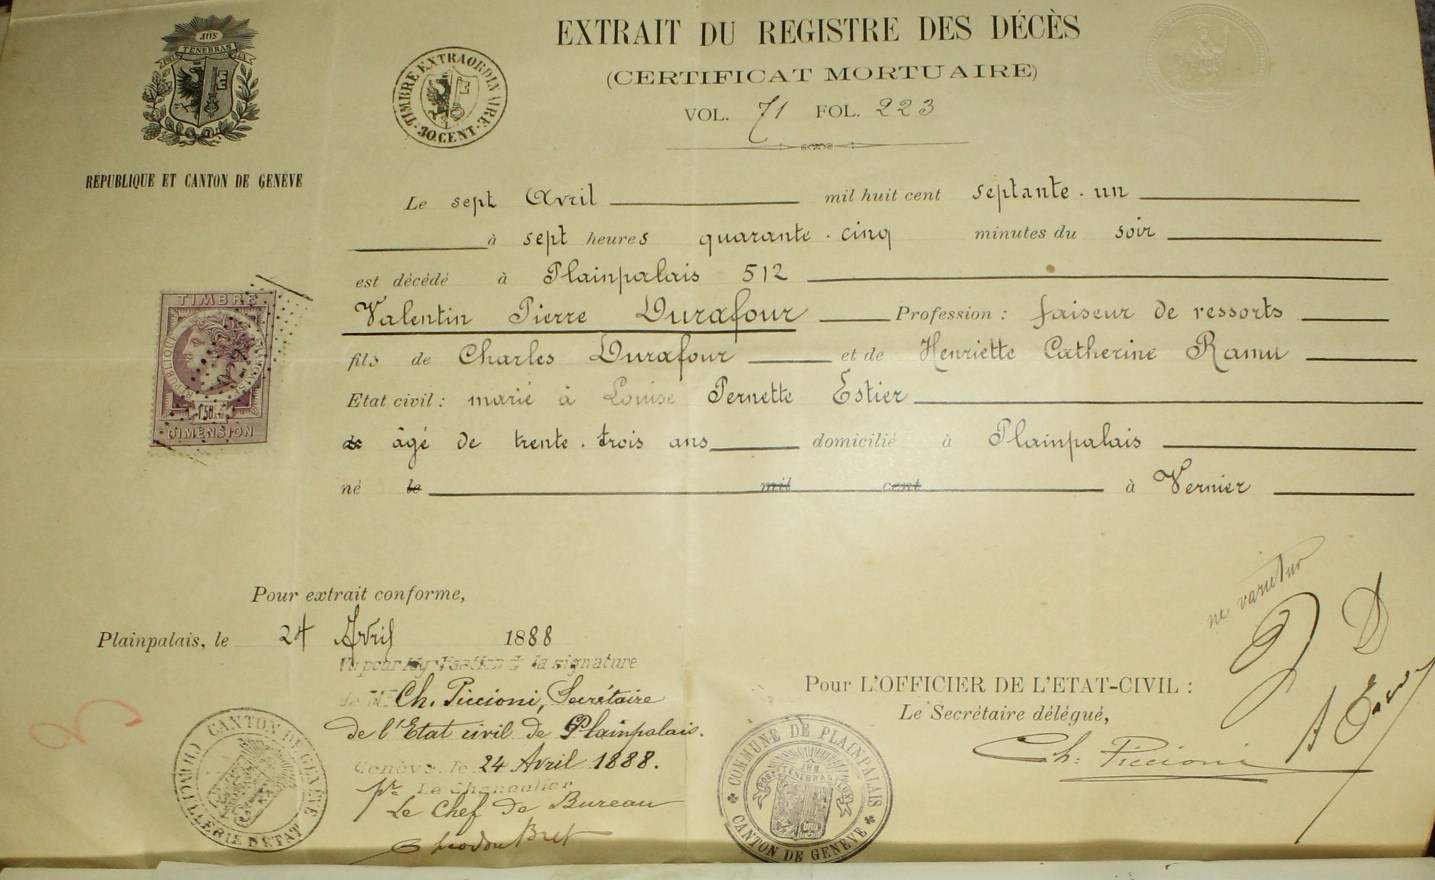 EXTRAIT DU REGISTRE DES DÉCÈS
(CERTIFICAT MORTUAIRE)
VOL. 71 FOL. 223
JHS
TENEBRAS
REPUBLIQUE ET CANTON DE GENÈVE
TIMBRE EXTRAORDINAIRE
30 CENT.
Le sept Avril mil huit cent septante-un
à sept heures quarante-cinq minutes du soir
est décédé à Plainpalais 512
Valentin Pierre Durafour Profession : faiseur de ressorts
fils de Charles Durafour et de Henriette Catherine Ramu
Etat civil : marié à Louise Pernette Estier
de âgé de trente-trois ans domicilié à Plainpalais
né le mil cent à Vernier
TIMBRE
DIMENSION
Pour extrait conforme,
Plainpalais, le 24 Avril 1888
Vu pour légalisation de la signature
de Mr Ch. Piccioni, Secrétaire
de l'Etat civil de Plainpalais.
Genève, le 24 Avril 1888.
pr Le Chancelier
Le Chef de Bureau
CANTON DE GENÈVE
CHANCELLERIE D'ETAT
COMMUNE DE PLAINPALAIS
CANTON DE GENÈVE
JHS
TENEBRAS
ne varietur
Pour L'OFFICIER DE L'ETAT-CIVIL :
Le Secrétaire délégué,
Ch: Piccioni